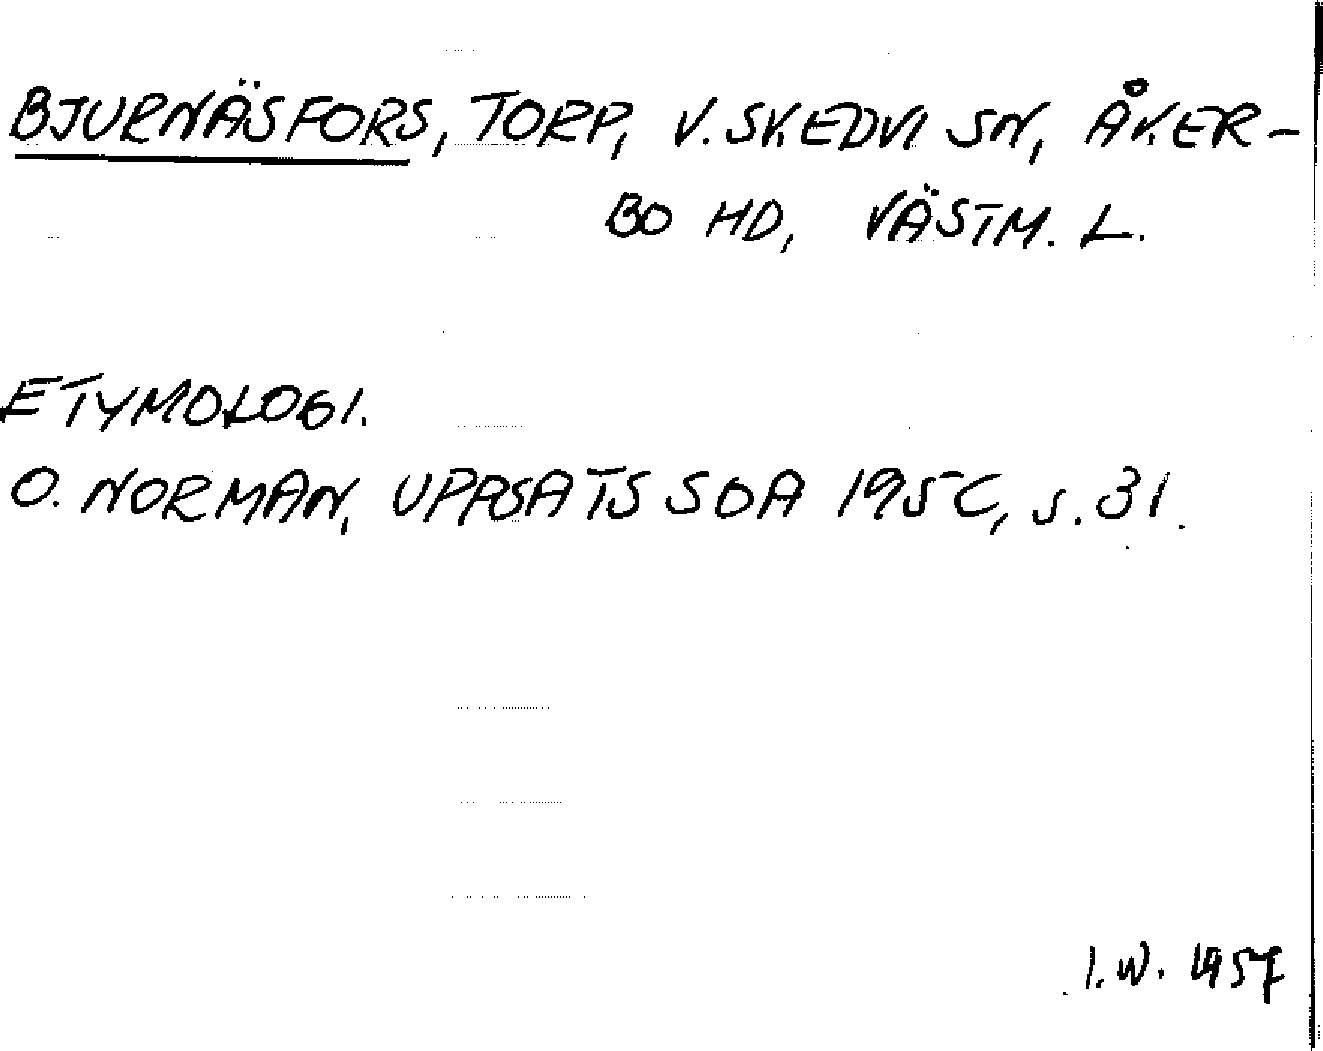 BJURNÄSFORS, TORP, V. SKEDVI SN, ÅKER-
BO HD, VÄSTM. L.
ETYMOLOGI.
O. NORMAN, UPPSATS SOA 1950, s. 31.
I.W. 1957